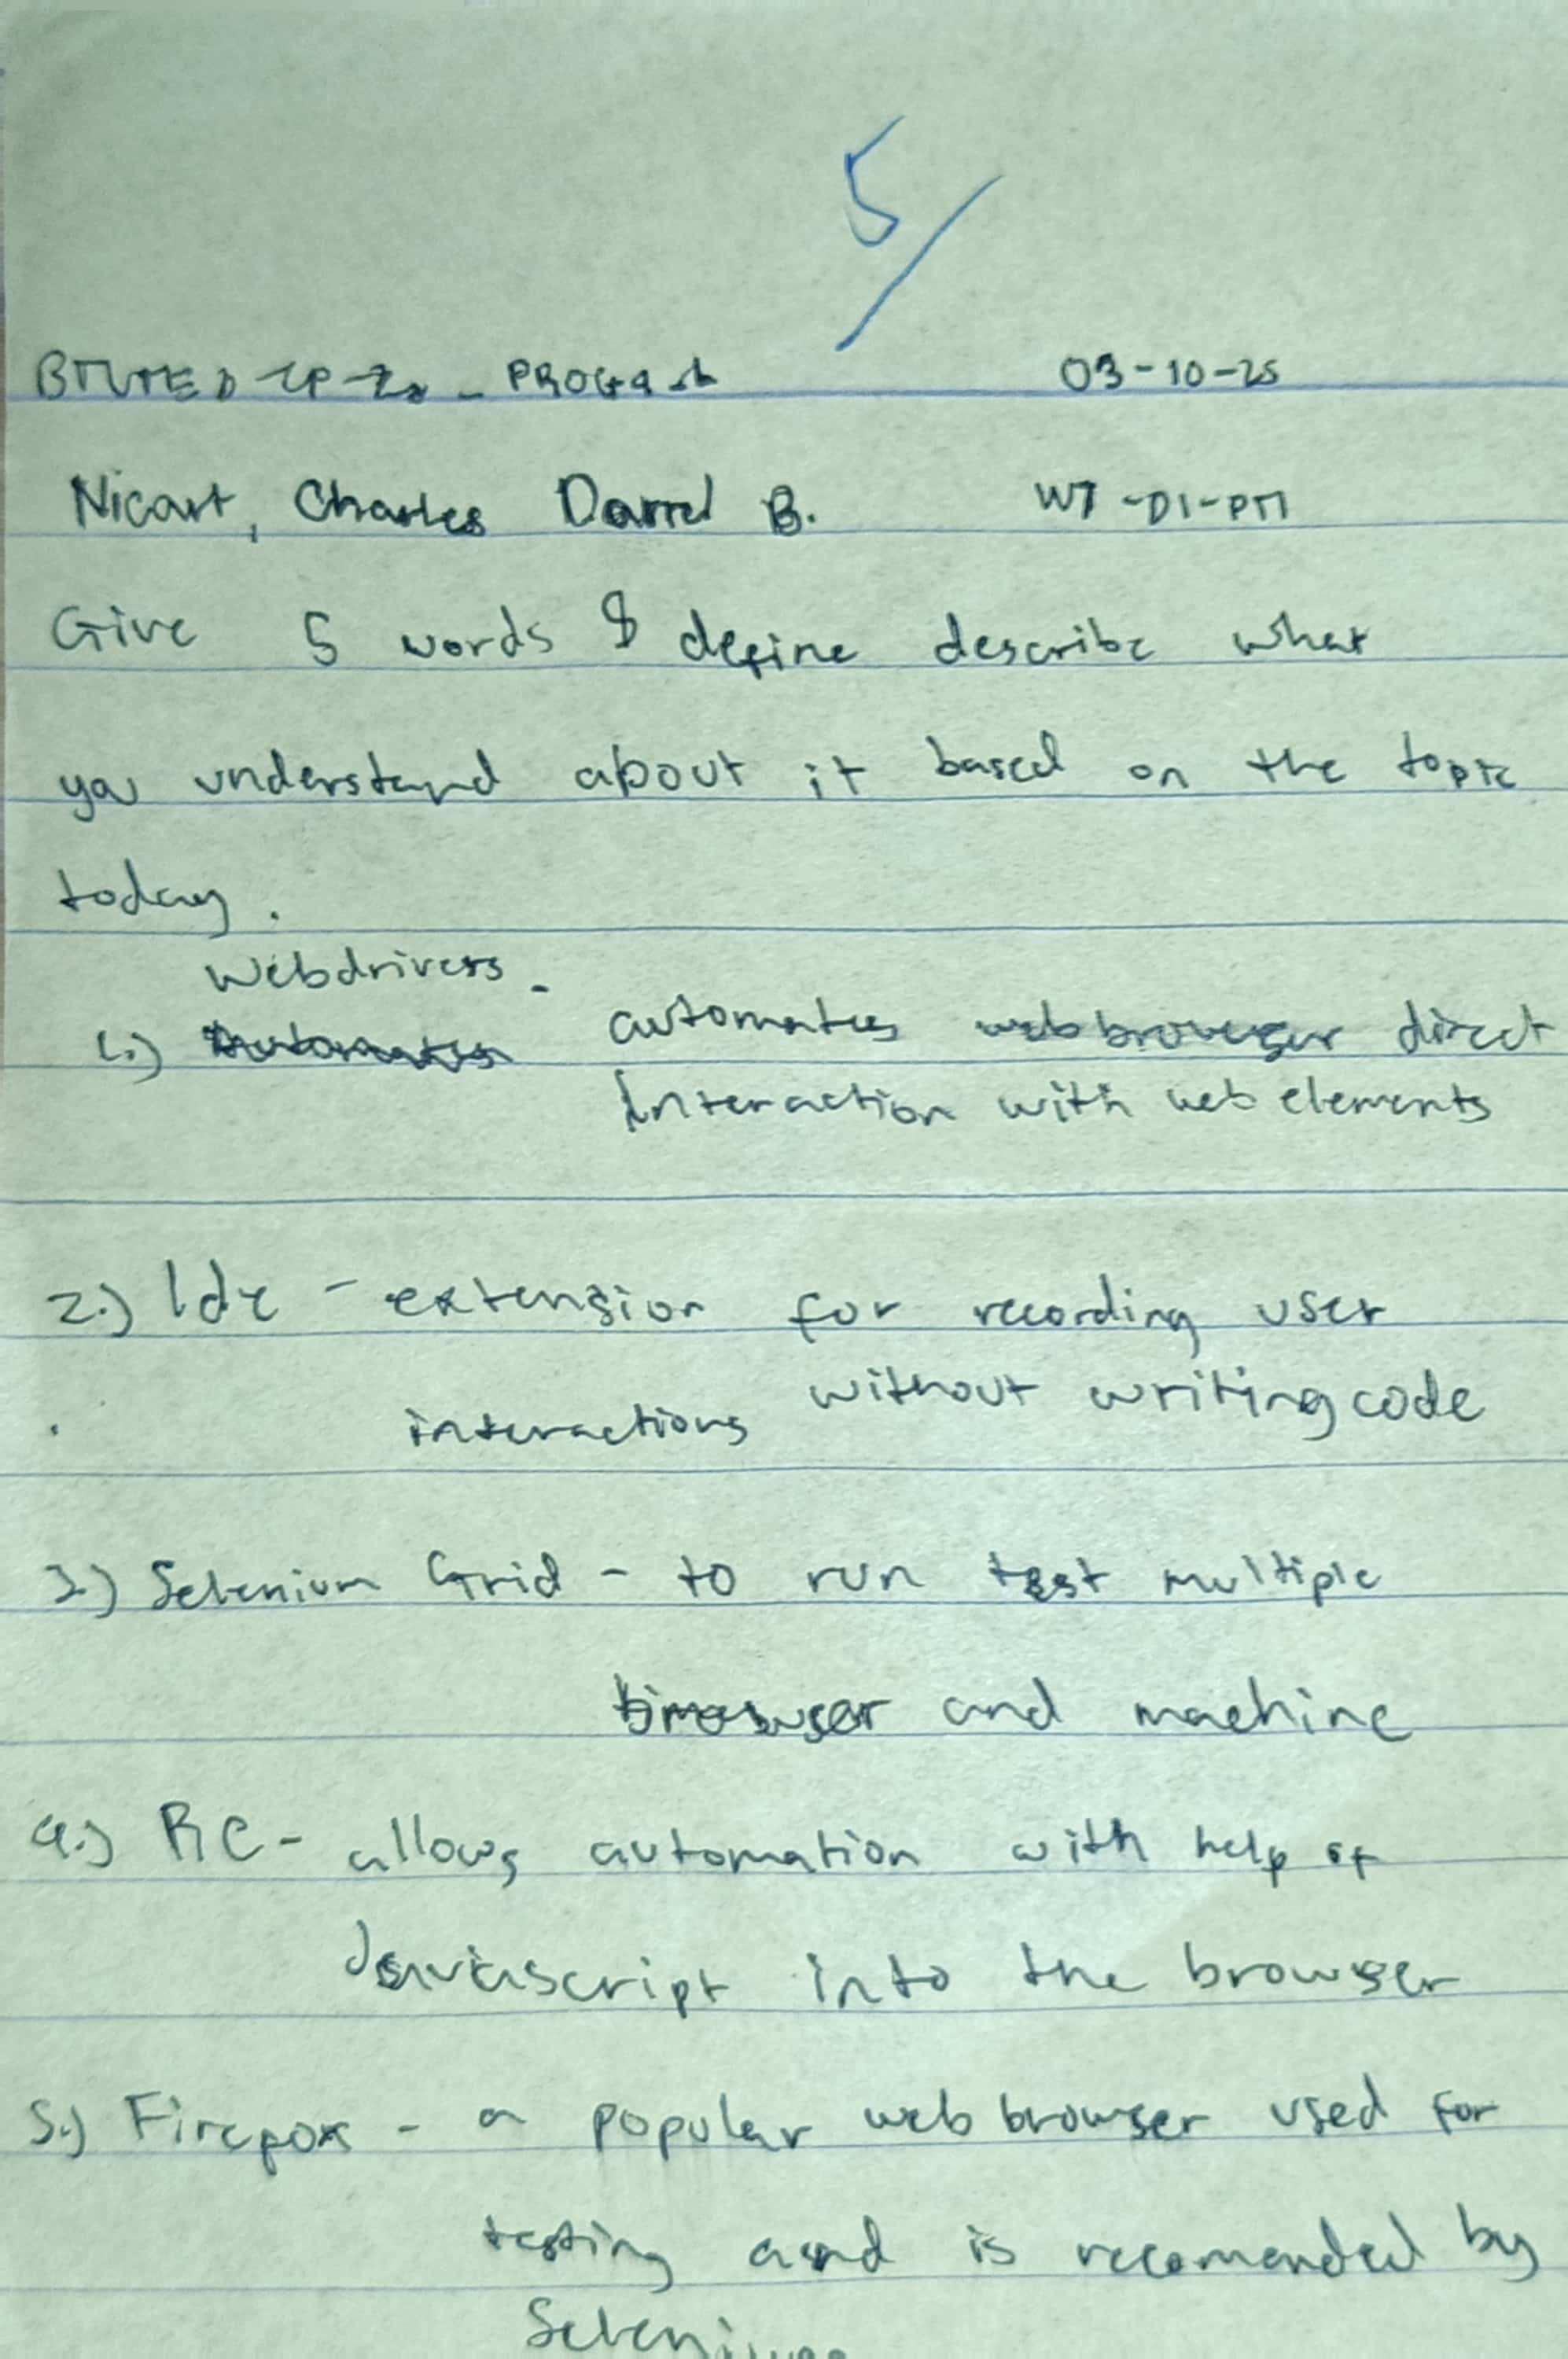 5/
03-10-25
Nicart, Charles Darrel B. W7-D1-PM
Give 5 words & define describe what
you understand about it based on the topic
today.
Webdrivers -
1.) automates direct
Interaction with web elements
2.) Ide - extension for recording user
interactions without writing code
3.) Selenium Grid - to run test multiple
browser and machine
4.) RC - allows automation with help of
Javascript into the browser
5.) Firefox - a popular web browser used for
testing and is recomended by
Selenium